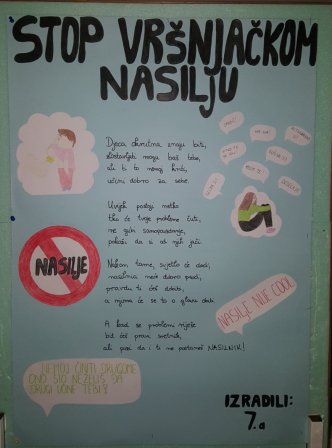 STOP VRŠNJAČKOM
NASILJU
Djeca okrutna znaju biti,
zlostavljati mogu baš tebe,
ali ti to nemoj kriti,
učini dobro za sebe.
Uvijek postoji netko
tko će tvoje probleme čuti,
ne gubi samopouzdanje,
pokaži da si od njih jači.
Nakon tame, svjetlo će doći,
nasilnici neće dobro proći,
pravdu ti ćeš dobiti,
a njima će se to o glavu obiti.
A kad se problemi riješe
bit ćeš pravi sretnik,
ali pazi da i ti ne postaneš NASILNIK!
NASILJE
NASILJE NIJE COOL
NEMOJ ČINITI DRUGOME
ONO ŠTO NE ŽELIŠ DA
DRUGI UČINE TEBI!
IZRADILI:
7.a